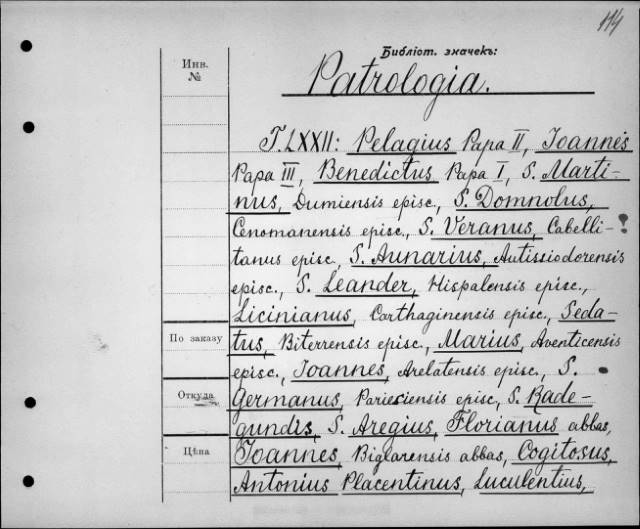 114
Библіот. значекъ:
Инв.
№
Patrologia.
T. LXXII: Pelagius Papa II, Joannes
Papa III, Benedictus Papa I, S. Marti-
nus, Dumiensis episc., S. Domnolus,
Cenomanensis episc., S. Veranus, Cabelli-
tanus episc., S. Aunarius, Autissiodorensis
episc., S. Leander, Hispalensis episc.,
Licinianus, Carthaginensis episc., Seda-
По заказу
tus, Biterrensis episc., Marius, Aventicensis
episc., Joannes, Arelatensis episc., S.
Откуда
Germanus, Parisiensis episc., S. Rade-
gundis, S. Aregius, Florianus abbas,
Цѣна
Joannes, Biglarensis abbas, Cogitosus,
Antonius Placentinus, Luculentius,